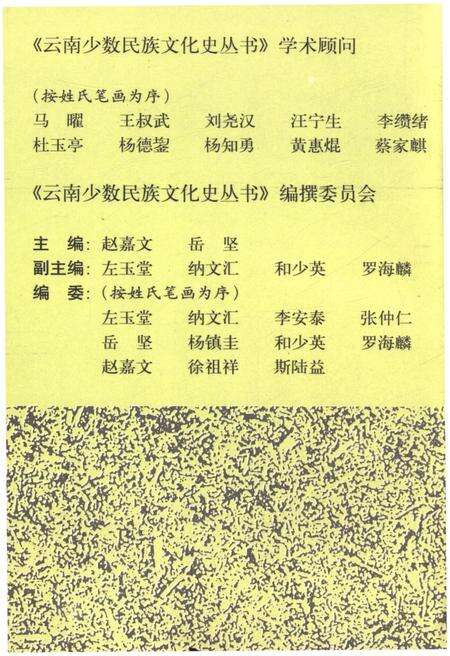 《云南少数民族文化史丛书》学术顾问
(按姓氏笔画为序)
马 曜 王叔武 刘尧汉 汪宁生 李缵绪
杜玉亭 杨德鋆 杨知勇 黄惠焜 蔡家麒
《云南少数民族文化史丛书》编撰委员会
主 编: 赵嘉文 岳 坚
副主编: 左玉堂 纳文汇 和少英 罗海麟
编 委: (按姓氏笔画为序)
左玉堂 纳文汇 李安泰 张仲仁
岳 坚 杨镇圭 和少英 罗海麟
赵嘉文 徐祖祥 斯陆益